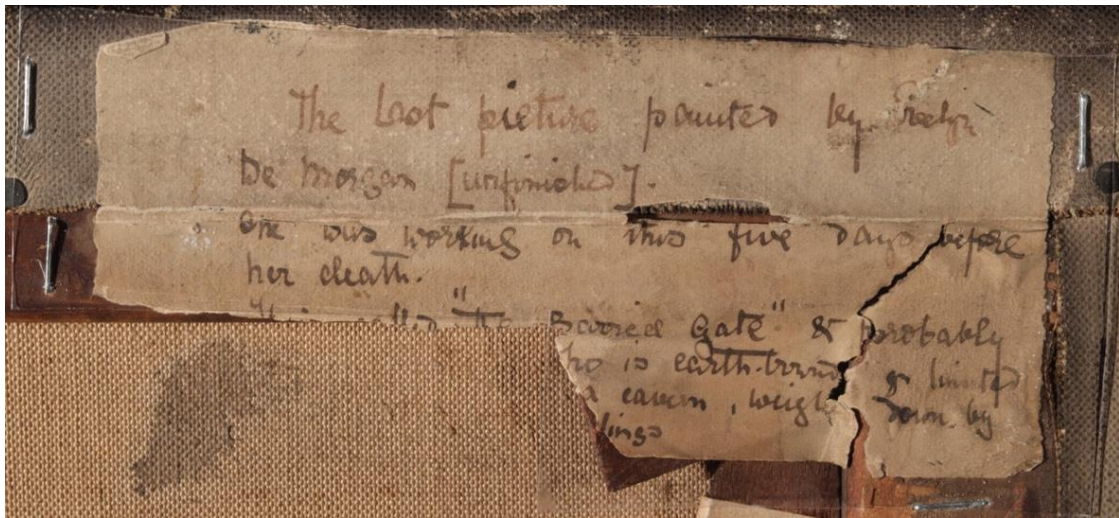 The Last picture painted by Evelyn
De Morgan [unfinished].
She was working on this five days before
her death.
called "The Barred Gate" & probably
who is earth-bound & limited
a cavern, weighed down by